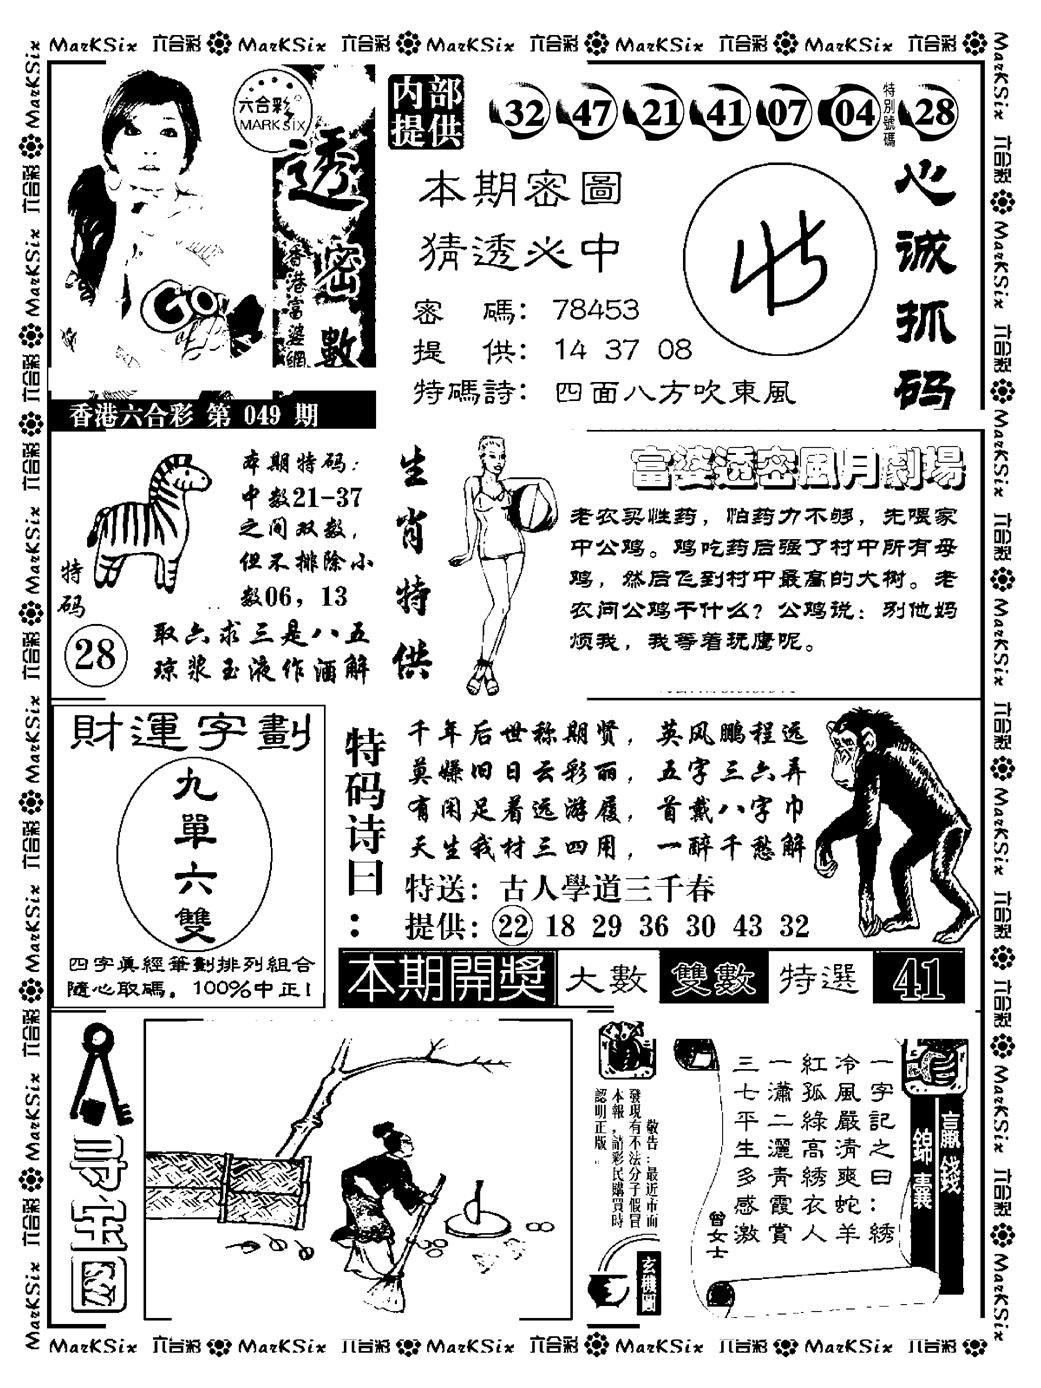 MarKSix 六合彩 MarKSix 六合彩 MarKSix 六合彩 MarKSix 六合彩 MarKSix 六合彩
六合彩
MARK SIX
透密數
香港富婆網
香港六合彩 第 049 期
内部提供
32 47 21 41 07 04 特別號碼 28
本期密圖
猜透必中
密 碼: 78453
提 供: 14 37 08
特碼詩: 四面八方吹東風
心诚抓码
特码
28
本期特码:
中数21-37
之间双数,
但不排除小
数06, 13
取六求三是八五
琼浆玉液作酒解
生肖特供
富婆透密風月劇場
老农买性药，怕药力不够，先喂家
中公鸡。鸡吃药后强了村中所有母
鸡，然后飞到村中最高的大树。老
农问公鸡干什么？公鸡说：别他妈
烦我，我等着玩鹰呢。
財運字劃
九單六雙
四字真經筆劃排列組合
隨心取碼，100%中正!
特码诗曰:
千年后世称期贤，英风鹏程远
莫嫌旧日云彩丽，五字三六弄
有闲足着远游履，首戴八字巾
天生我材三四用，一醉千愁解
特送: 古人學道三千春
提供: 22 18 29 36 30 43 32
本期開獎 大數 雙數 特選 41
寻宝图
敬告:最近市面
發現有不法分子假冒
本報,請彩民購買時
認明正版。
玄機圖
贏錢錦囊
一字記之曰:綉
冷風嚴清爽蛇羊
紅孤綠高綉衣人
一瀟二灑青霞賞
三七平生多感激
曾女士
MarKSix 六合彩 MarKSix 六合彩 MarKSix 六合彩 MarKSix 六合彩 MarKSix 六合彩